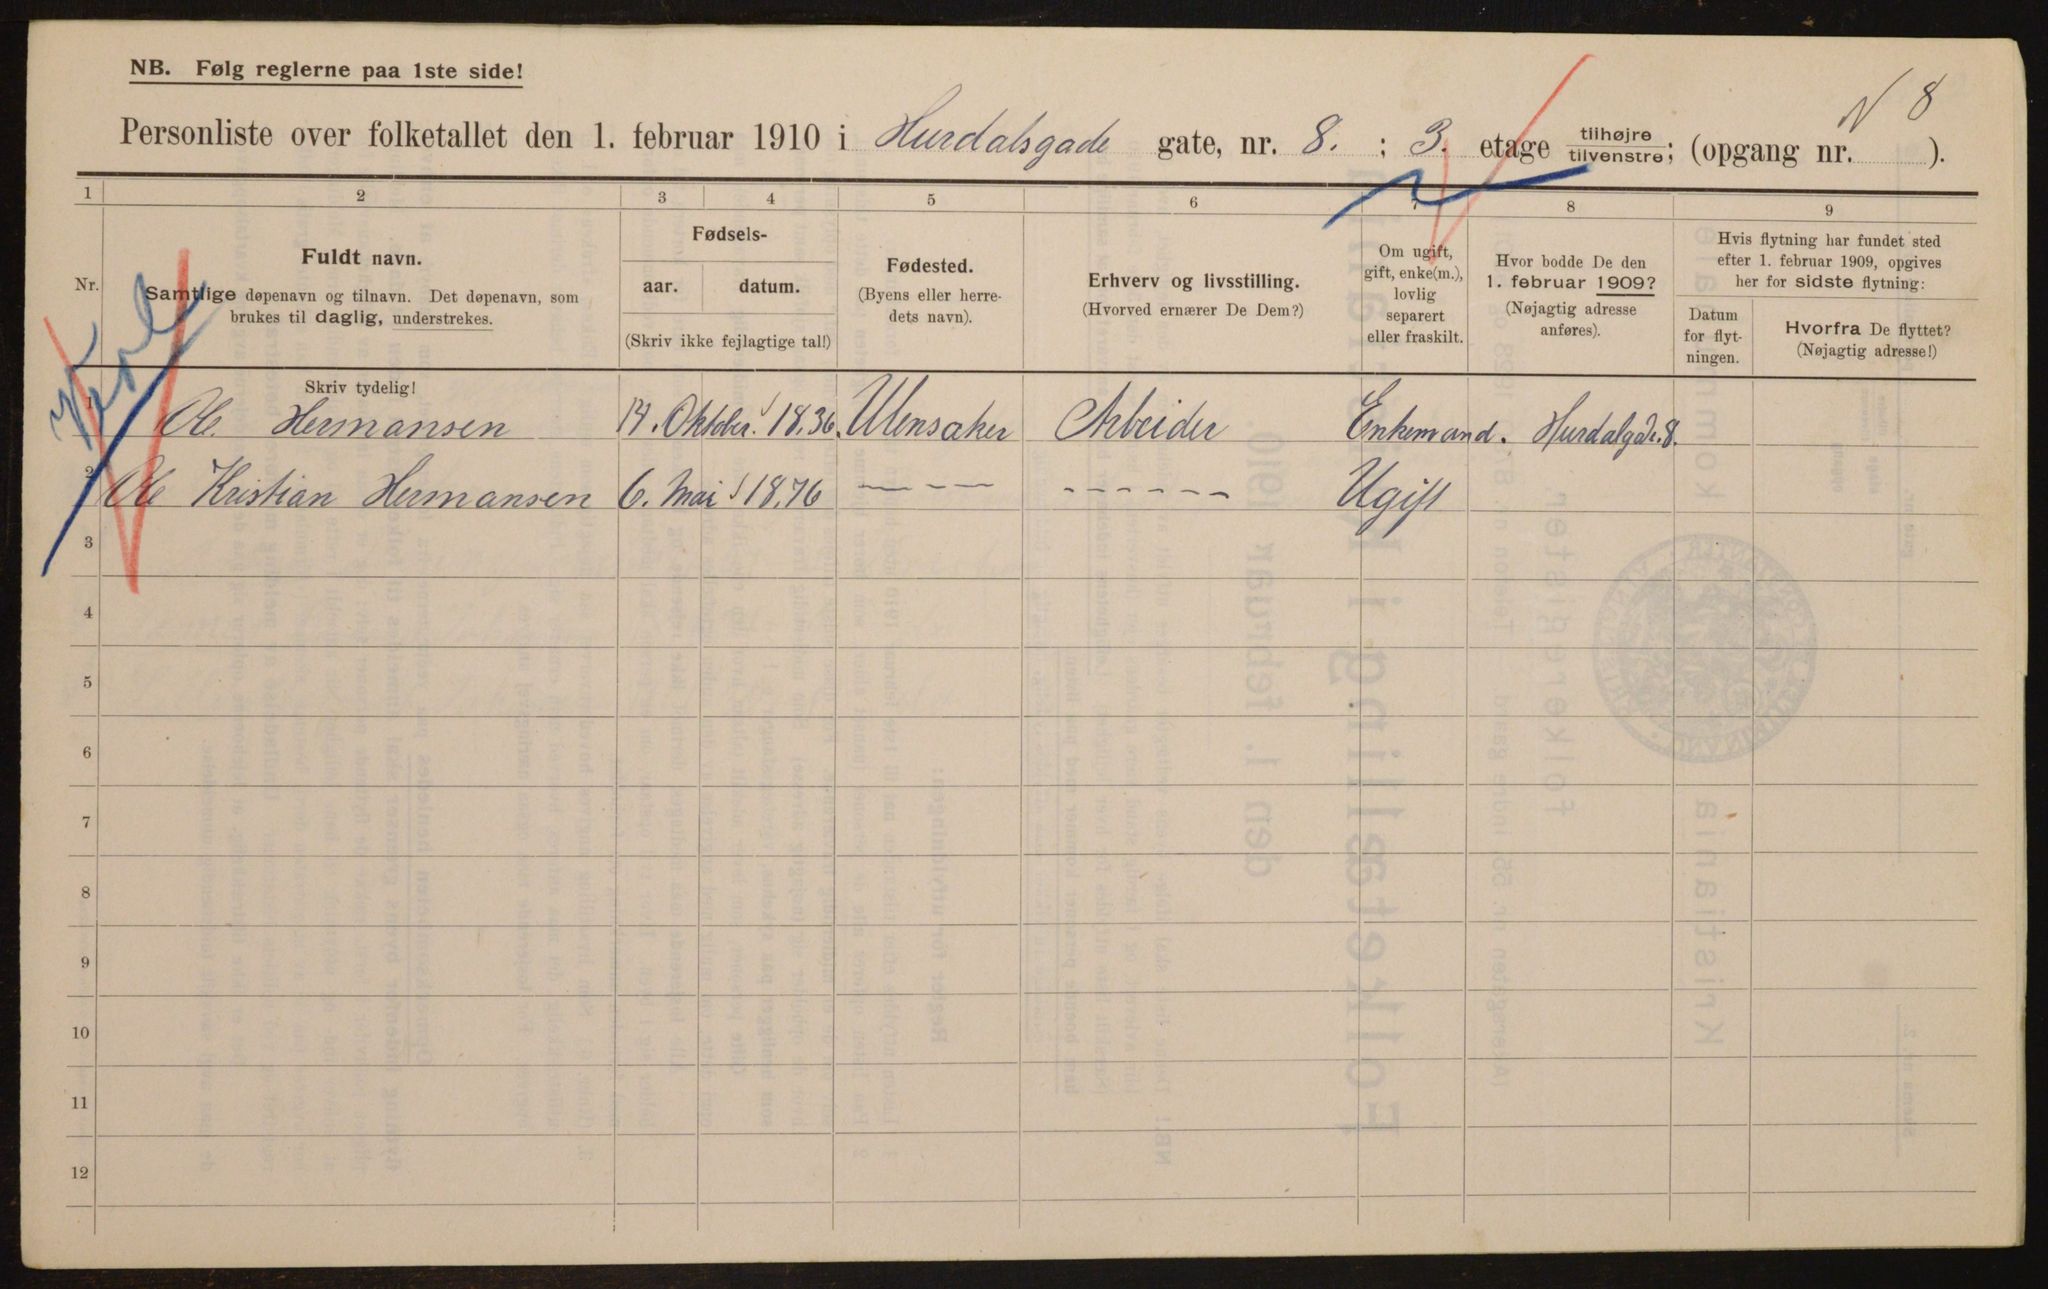 NB. Følg reglerne paa 1ste side!
N 8
Personliste over folketallet den 1. februar 1910 i Hurdalsgade gate, nr. 8. ; 3. etage tilhøjre/tilvenstre; (opgang nr. ).
1 2 3 4 5 6 7 8 9
Nr.
Fuldt navn.
Samtlige døpenavn og tilnavn. Det døpenavn, som
brukes til daglig, understrekes.
Skriv tydelig!
Fødsels-
aar. datum.
(Skriv ikke fejlagtige tal!)
Fødested.
(Byens eller herre-
dets navn).
Erhverv og livsstilling.
(Hvorved ernærer De Dem?)
Om ugift,
gift, enke(m.),
lovlig
separert
eller fraskilt.
Hvor bodde De den
1. februar 1909?
(Nøjagtig adresse
anføres).
Hvis flytning har fundet sted
efter 1. februar 1909, opgives
her for sidste flytning:
Datum
for flyt-
ningen.
Hvorfra De flyttet?
(Nøjagtig adresse!)
1 Ole Hermansen 14. Oktober. 18.36. Ulensaker Arbeider Enkemand. Hurdalgdr. 8.
2 Ole Kristian Hermansen 6. Mai 18.76 — — — - - - - - - Ugift
3
4
5
6
7
8
9
10
11
12